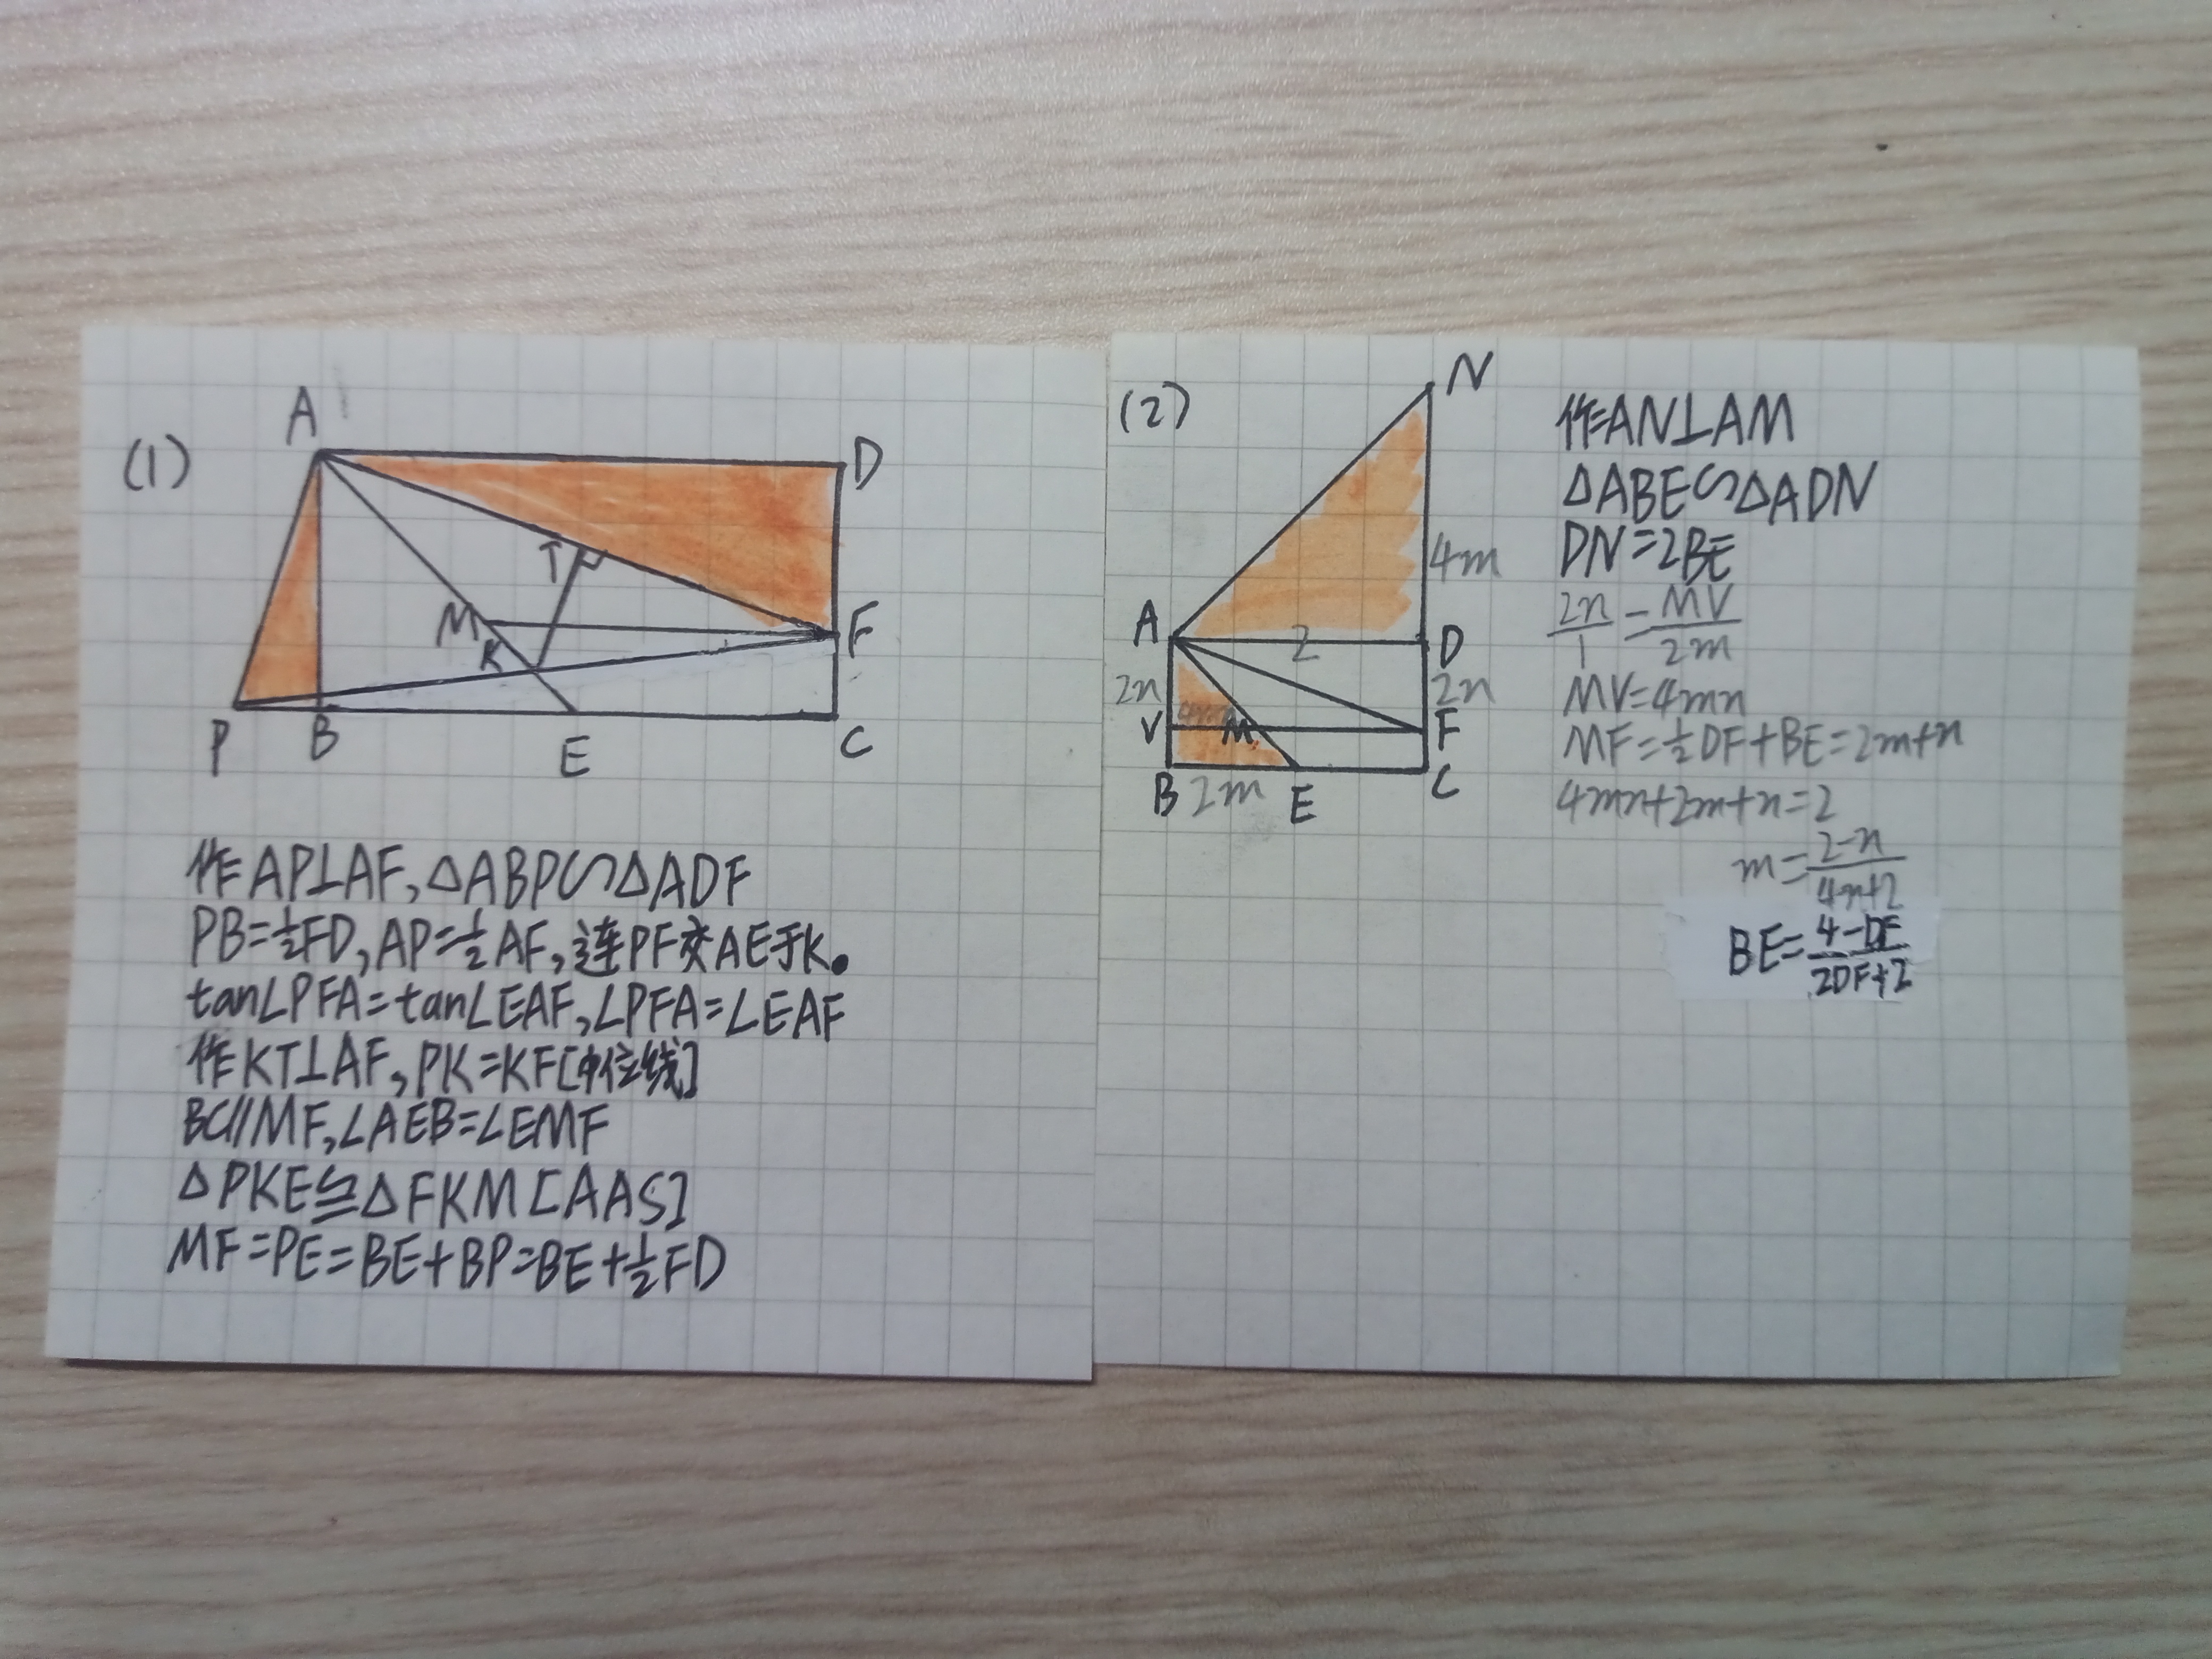 (1)
A
D
T
M
K
F
P
B
E
C
作AP⊥AF,△ABP∽△ADF
PB=½FD,AP=½AF,连PF交AE于K.
tan∠PFA=tan∠EAF,∠PFA=∠EAF
作KT⊥AF,PK=KF[中位线]
BC//MF,∠AEB=∠EMF
△PKE≌△FKM[AAS]
MF=PE=BE+BP=BE+½FD
(2)
N
4m
A
2
D
2n
2n
V
M
F
B
2m
E
C
作AN⊥AM
△ABE∽△ADN
DN=2BE
2n/1=MV/2m
MV=4mn
MF=½DF+BE=2m+n
4mn+2m+n=2
m=2-n/4n+2
BE=4-DF/2DF+2